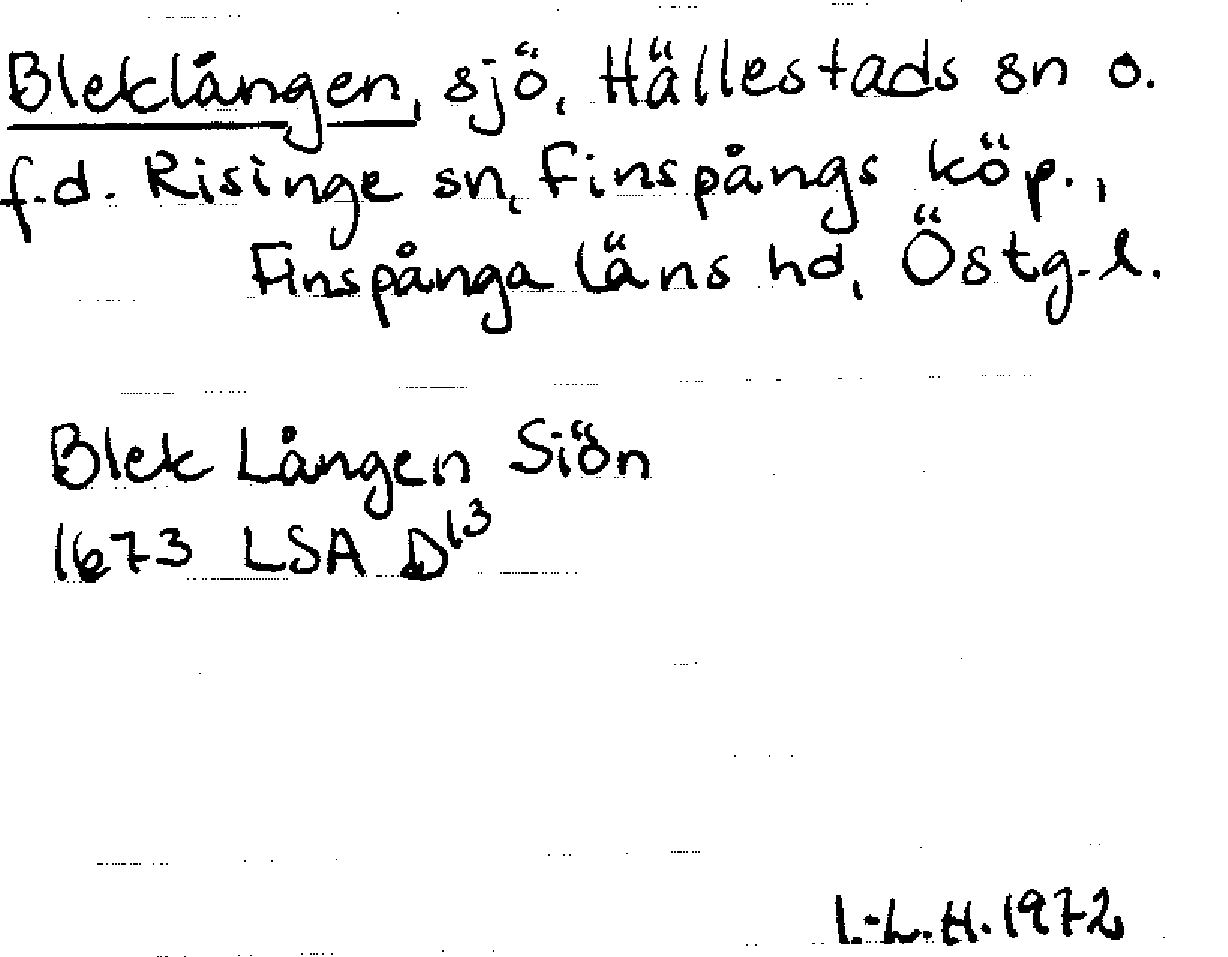 Bleklången, sjö, Hällestads sn o.
f.d. Risinge sn, Finspångs köp.,
Finspånga läns hd, Östg.l.
Blek Lången Siön
1673 LSA D13
I.-L.H. 1972